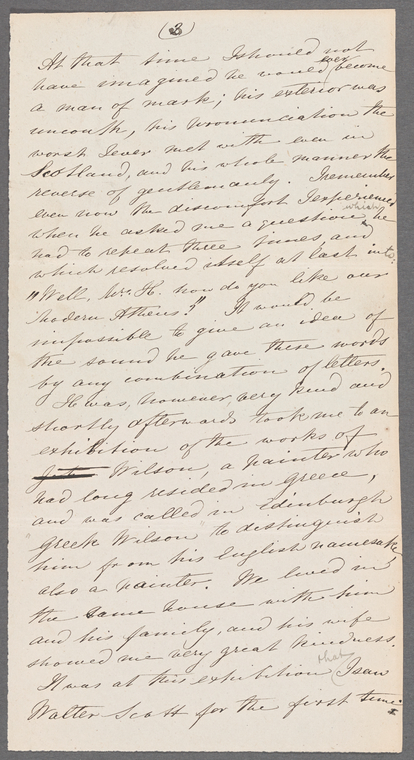 (2)
At that time I should not
have imagined he would ever become
a man of mark; his exterior was
uncouth, his pronunciation the
worst I ever met with even in
Scotland, and his whole manner the
reverse of gentlemanly. I remember
even now the discomfort I experienced
when he asked me a question which he
had to repeat three times, and
which resolved itself at last into:
"Well, Mrs. H. how do you like our
modern Athens?" It would be
impossible to give an idea of
the sound he gave these words
by any combination of letters.
He was, however, very kind and
shortly afterwards took me to an
exhibition of the works of
Wilson, a painter who
had long resided in Greece,
and was called in Edinburgh
Greek Wilson to distinguish
him from his English namesake
also a painter. We lived in
the same house with him
and his family, and his wife
showed me very great kindness.
It was at this exhibition that I saw
Walter Scott for the first time.